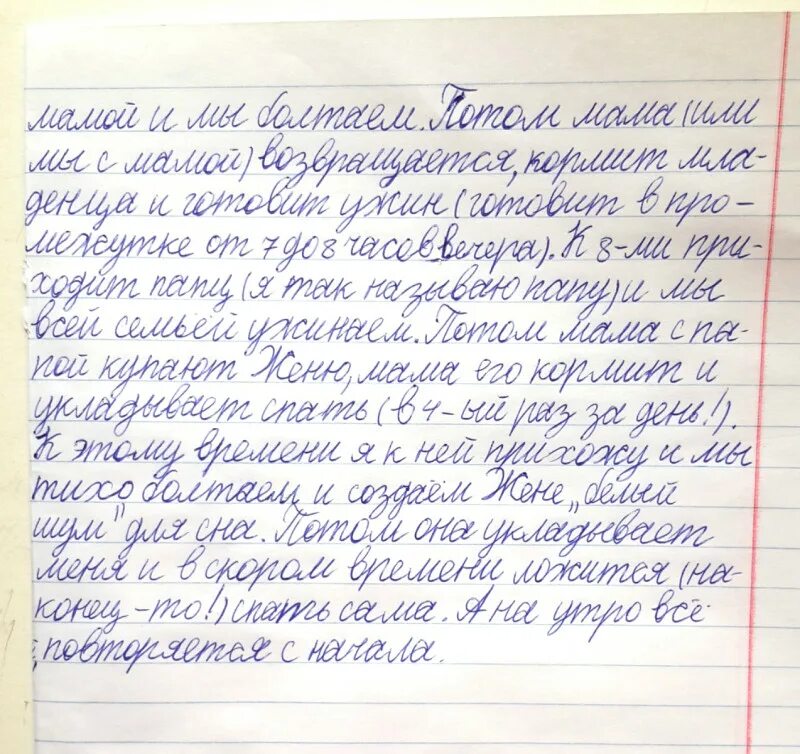 мамой и мы болтаем. Потом мама (или
мы с мамой) возвращается, кормит мла-
денца и готовит ужин (готовит в про-
межутке от 7 до 8 часов вечера). К 8-ми при-
ходит папц (я так называю папу) и мы
всей семьёй ужинаем. Потом мама с па-
пой купают Женю, мама его кормит и
укладывает спать (в 4-ый раз за день!).
К этому времени я к ней прихожу и мы
тихо болтаем и создаём Жене „белый
шум" для сна. Потом она укладывает
меня и в скором времени ложится (на-
конец-то!) спать сама. А на утро всё
повторяется с начала.